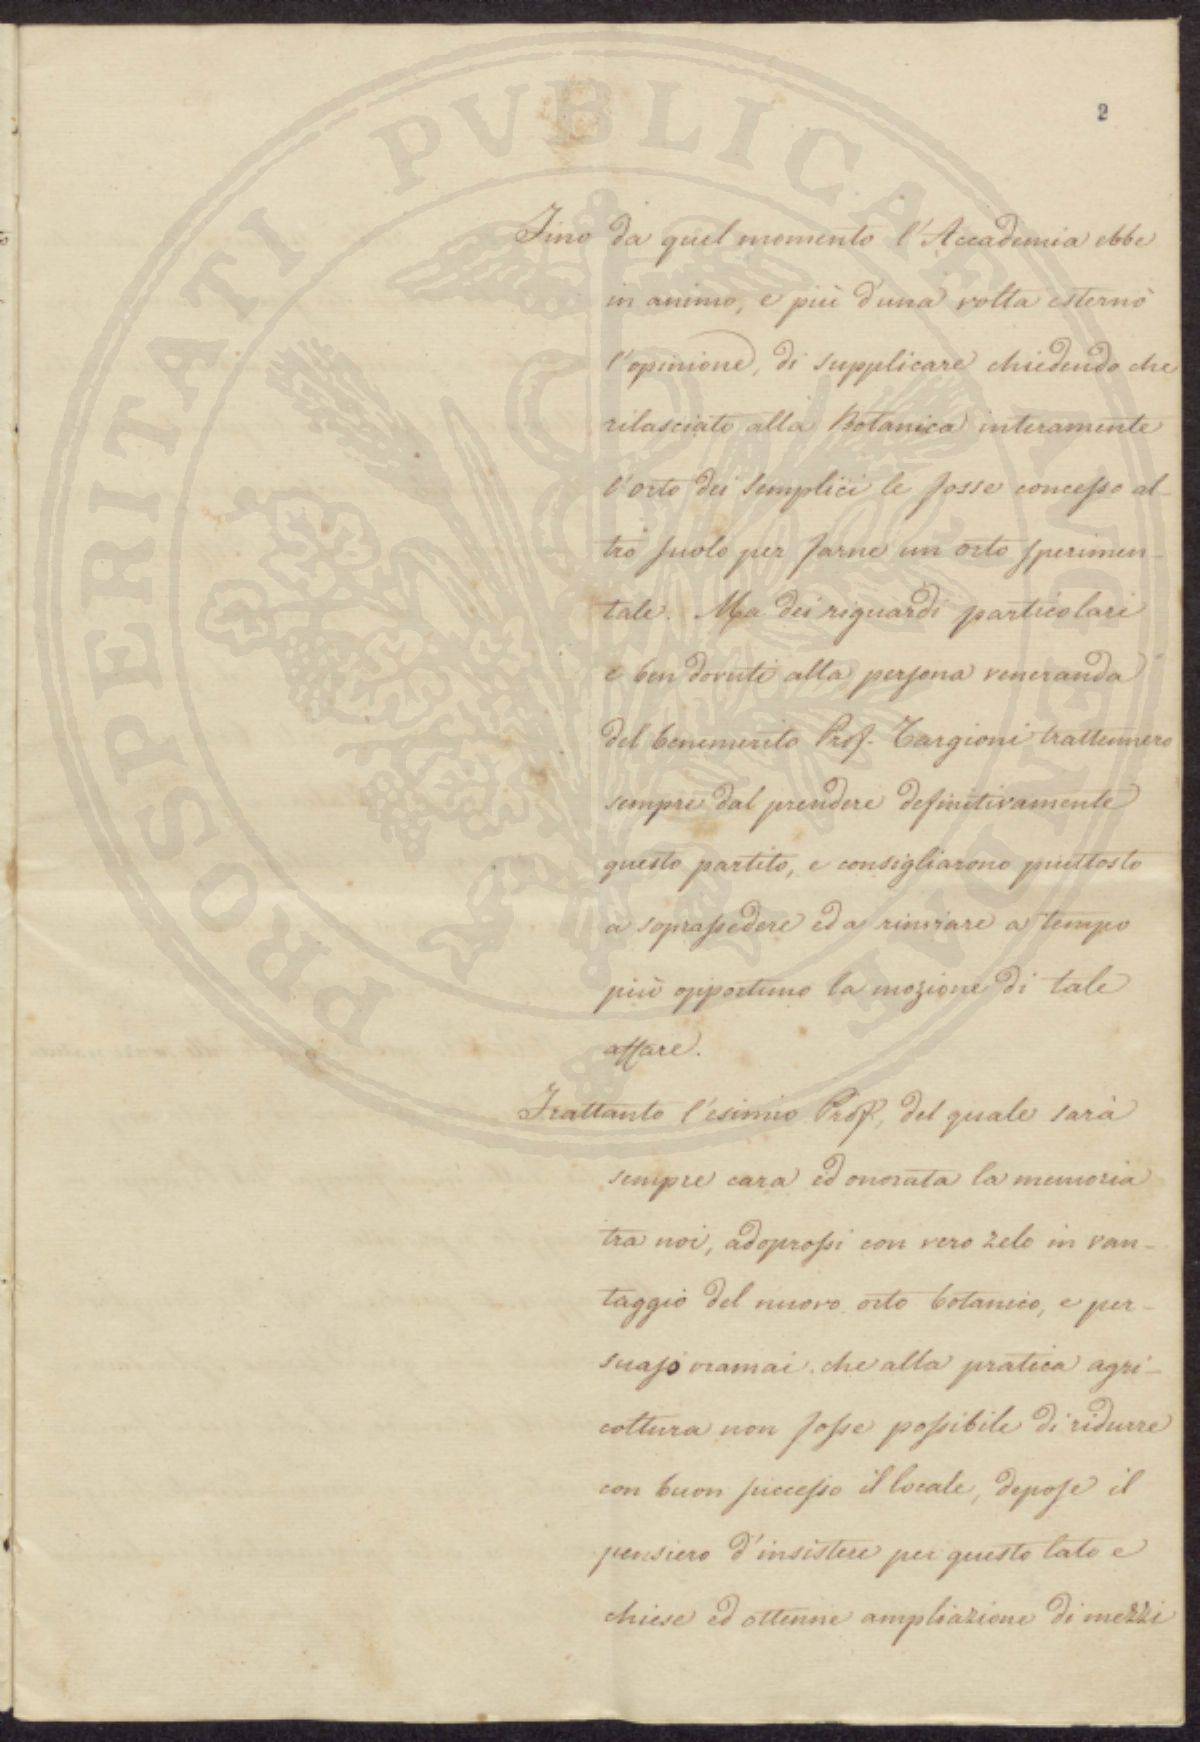 2
Fino da quel momento l'Accademia ebbe
in animo, e più d'una volta esternò
l'opinione, di supplicare chiedendo che
rilasciato alla Botanica interamente
l'orto dei Semplici le fosse concesso al-
tro suolo per farne un orto sperimen-
tale. Ma dei riguardi particolari
e ben dovuti alla persona veneranda
del benemerito Prof. Targioni trattennero
sempre dal prendere definitivamente
questo partito, e consigliarono piuttosto
a soprassedere ed a rinviare a tempo
più opportuno la mozione di tale
affare.
Frattanto l'esimio Prof., del quale sarà
sempre cara ed onorata la memoria
tra noi, adoprossi con vero zelo in van-
taggio del nuovo orto botanico, e per-
suaso oramai che alla pratica agri-
coltura non fosse possibile di ridurre
con buon successo il locale, depose il
pensiero d'insistere per questo lato e
chiese ed ottenne ampliazione di mezzi
PROSPERITATI PVBLICAE AVGENDAE